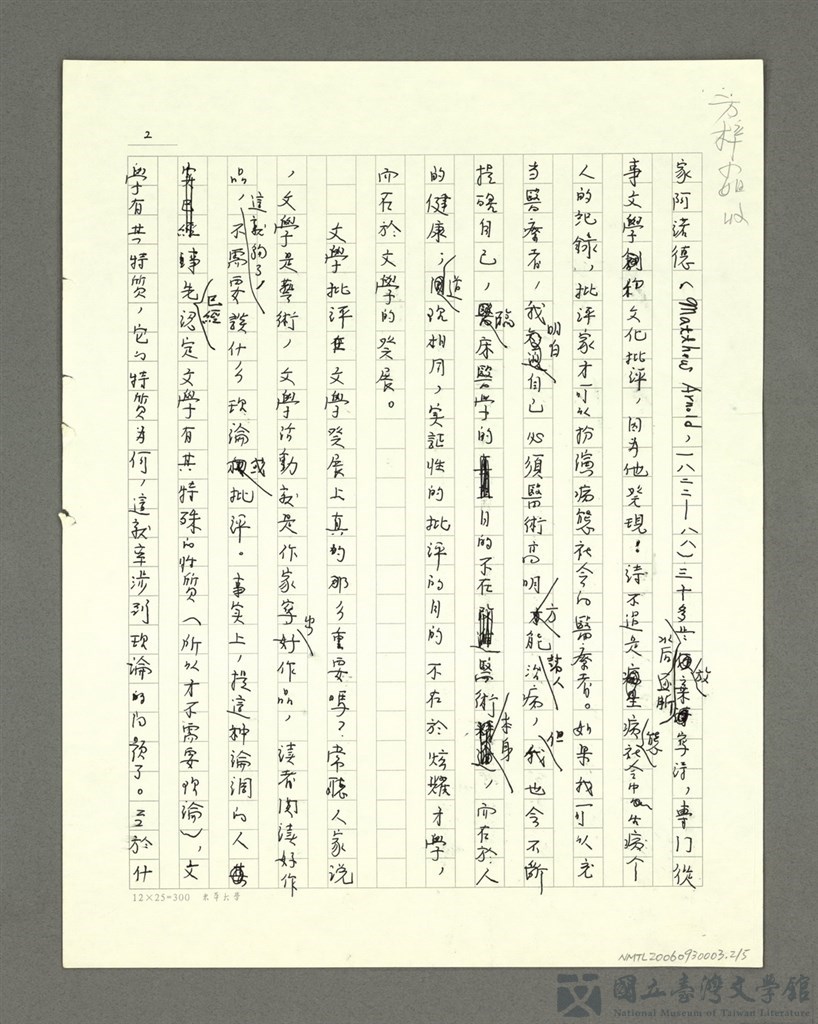 2
方梓如收
家阿諾德(Matthew Arnold,一八二二—八八)三十多歲以后放棄寫詩,專門從
事文學和文化批評,因為他發現:詩不過是病態社会中的病个
人的記錄,批評家才可以扮演病態社会的醫療者。如果我可以充
当醫療者,我明白自己必須醫術高明方能治病人,但我也会不斷
提醒自己,臨床醫學的目的不在醫術本身,而在於人
的健康;道理相同,实証性的批評的目的不在於炫耀才學,
而在於文學的發展。
文學批評在文學發展上真的那么重要嗎?常聽人家說
,文學是藝術,文學活動就是作家寫出好作品,讀者閱讀好作
品,這就夠了,不需要談什么理論或批評。事实上,提這种論調的人
已經事先認定文學有其特殊的性質(所以才不需要理論),文
學有其特質,它的特質為何,這就牽涉到理論的问題了。至於什
12×25=300 東華大學
NMTL20060930003.2/5
國立臺灣文學館
National Museum of Taiwan Literature